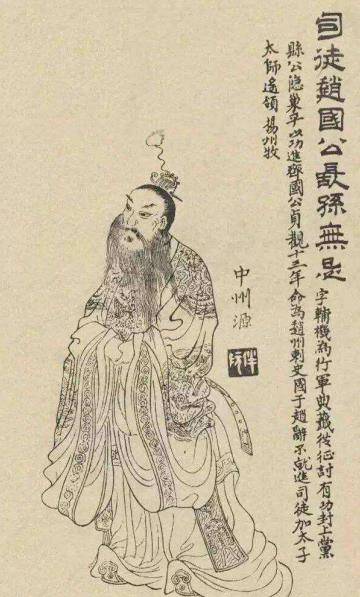 司徒趙國公長孫無忌
字輔機為行軍典籤從征討有功封上黨
縣公隐巢平以功進齊國公貞觀十三年命為趙州刺史國于趙辭不就進司徒加太子
太師遙領揚州牧
中州源
伴阮